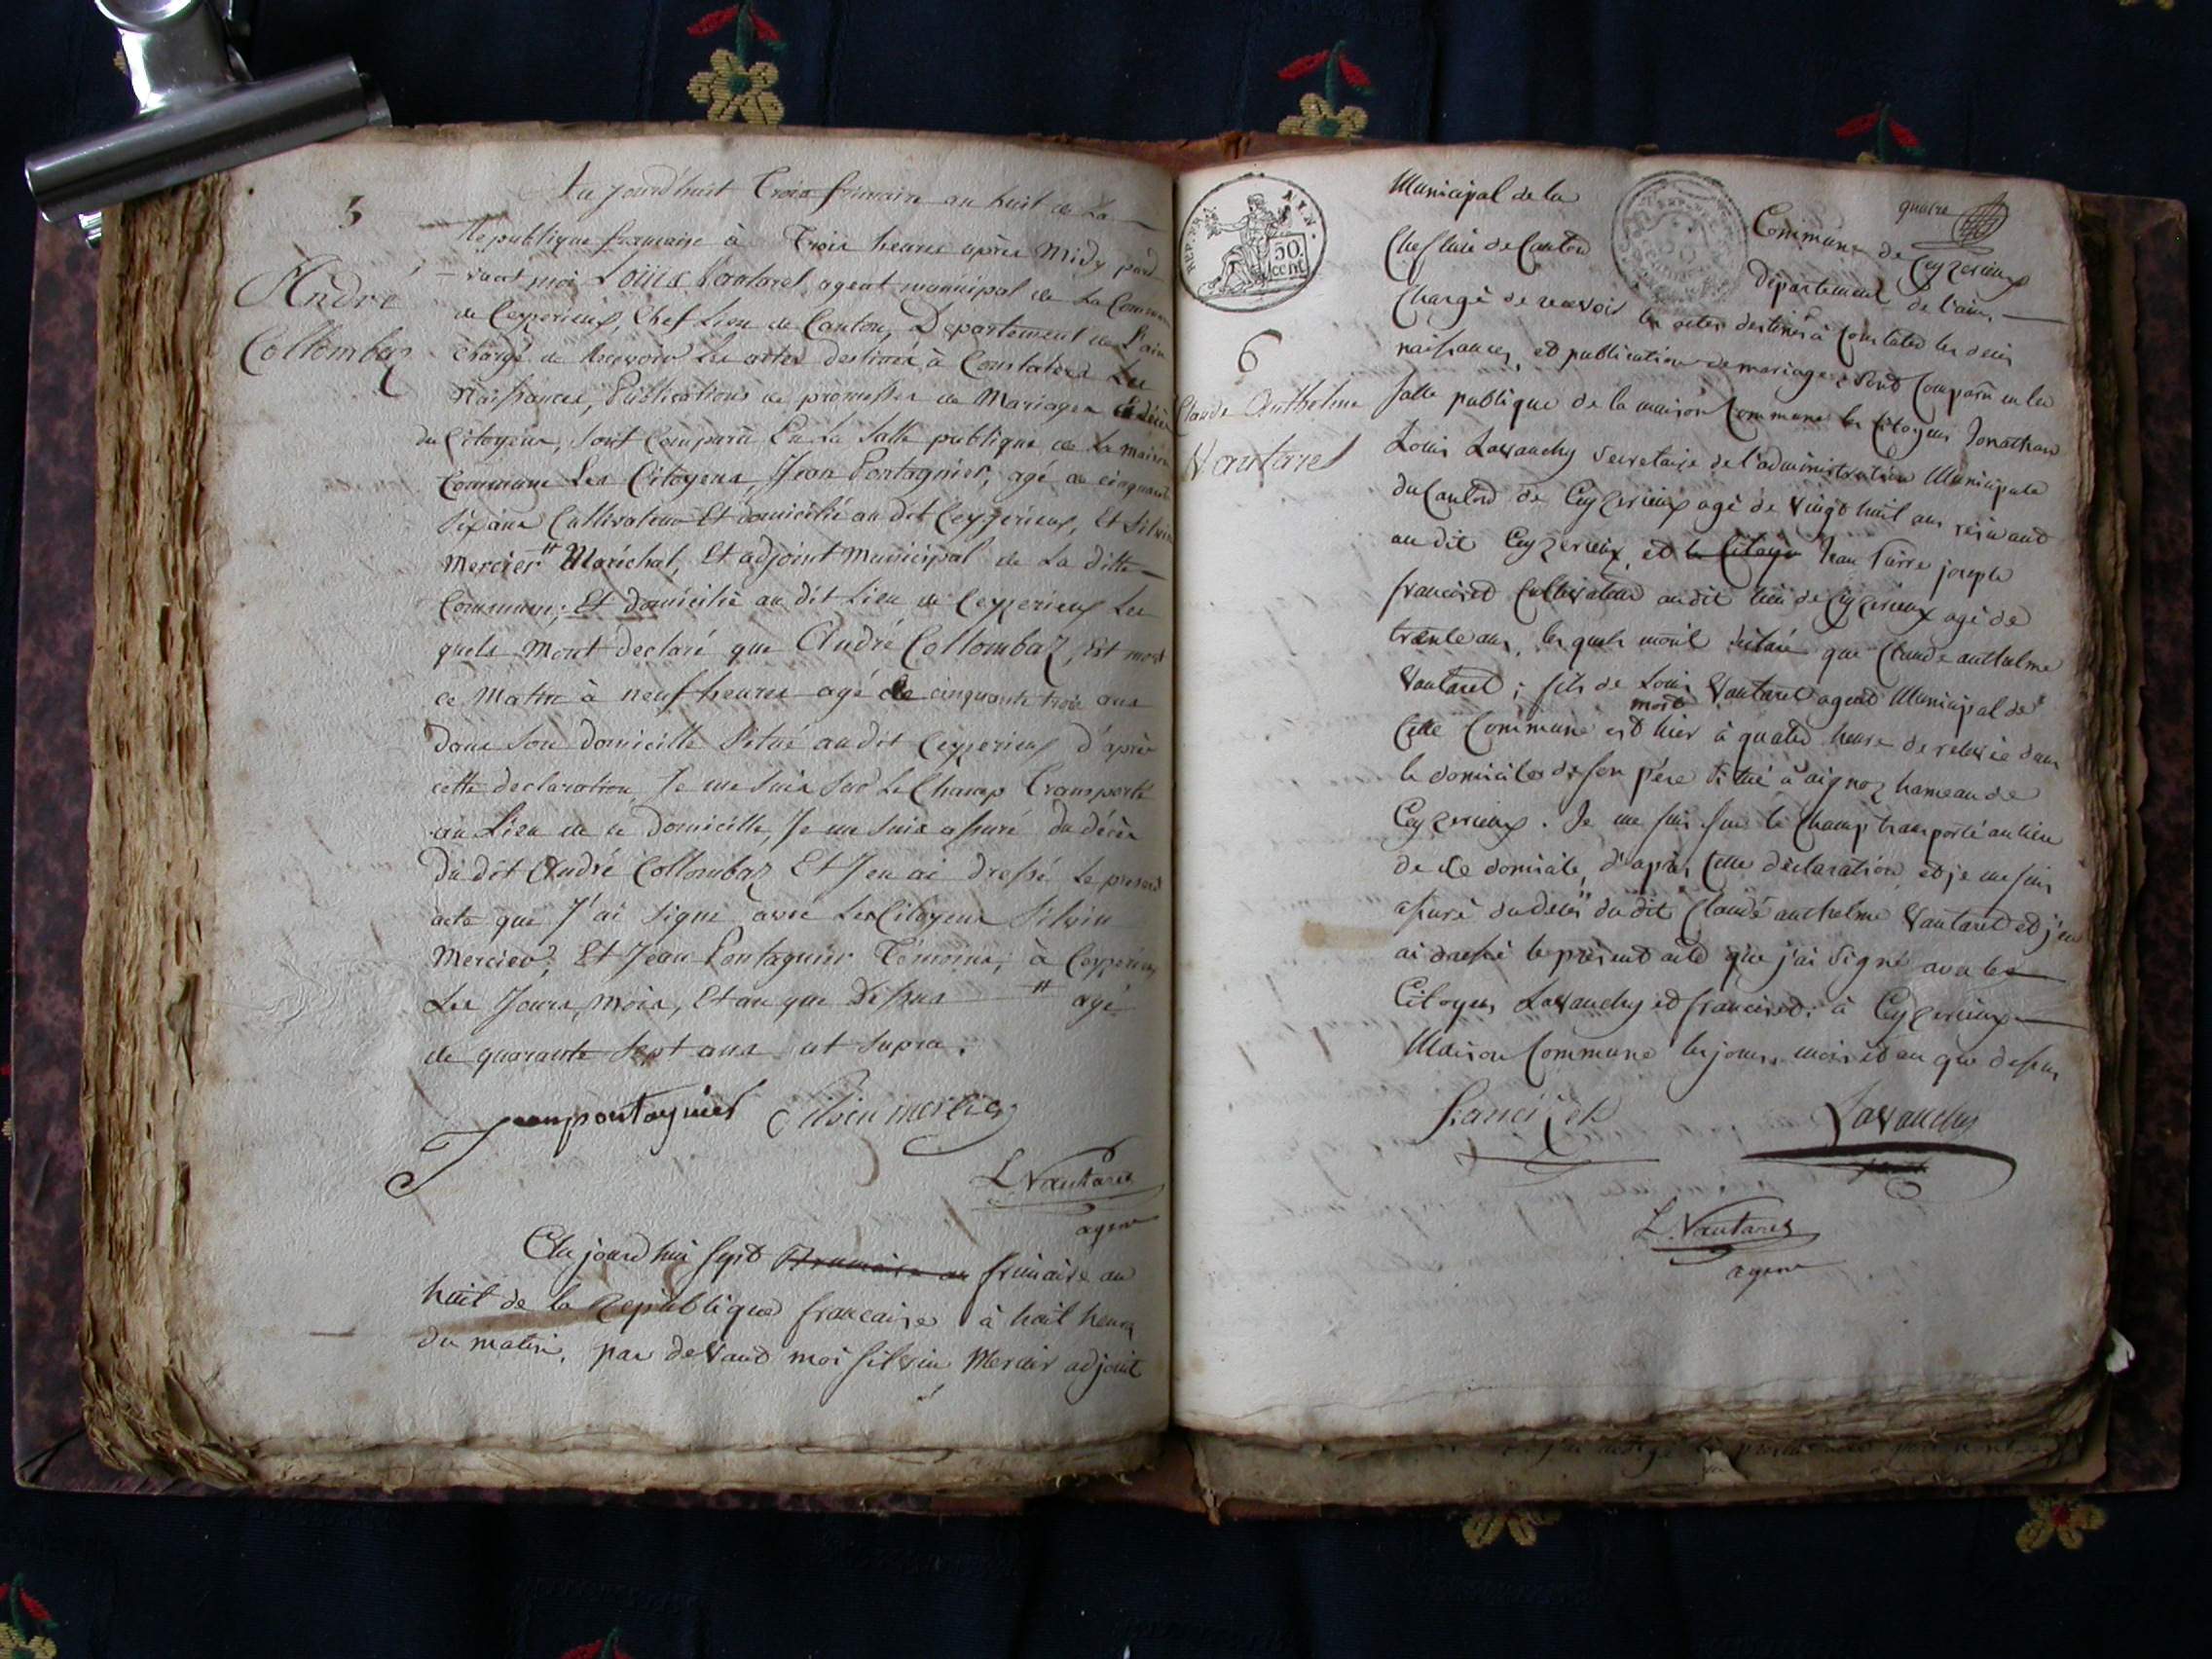 5
André
Collombaz
Au jourd'huit Trois frimaire an huit de La
République française à Trois heures après Midy pard
vant moi Louis Vautaret agent municipal de La Commune
de Ceyzerieux, Chef Lieu de Canton, Departement de L'ain
chargé de Recevoir Les actes destinés à Constater Les
Naissances, Publications de promesses de Mariages et décès
du Citoyens, sont Comparus En La Salle publique de La maison
Commune Les Citoyens, Jean Pontagnier, agé de cinquante
six ans Cultivateur Et domicilié au dit Ceyzerieux, Et Silvin
Mercier # Maréchal, Et adjoint Municipal de La ditte
Commune; Et domicilié au dit Lieu de Ceyzerieux Les
quels Mont declaré que André Collombaz, Est mort
ce Matin à neuf heures agé de cinquante trois ans
dans son domicille situé audit Ceyzerieux d'après
cette declaration Je me suis sur Le Champ Transporté
au Lieu de ce Domicille, Je me suis assuré du décès
du dit André Collombaz Et J'en ai dressé Le présent
acte que J'ai signé avec Les Citoyens Silvin
Mercier, Et Jean Pontagnier Témoins; à Ceyzerieux
Les Jours, Mois, Et an que dessus # agé
de quarante sept ans ut supra.
Jean pontagnier Silvin mercier
L Vautaret
agent
Au jourd'hui sept frimaire an
huit de la Republique francaise à huit heures
du matin, par devant moi Silvin Mercier adjoint
REP. FRA. AIN.
50
cent.
quatre
Municipal de la Commune de Ceyzerieux
Chef lieu de Canton Département de l'ain,
Chargé de recevoir les actes destinés à constater les décès
naissances, et publication de mariage; sont comparu en la
6
Claude Anthelme
Vautaret
salle publique de la maison Commune les Citoyens Jonathan
Louis Lavanchy secretaire de l'administration Municipale
du Canton de Ceyzerieux agé de vingt huit ans résidant
au dit Ceyzerieux, et le Citoyen Jean Pierre joseph
francised Cultivateur audit lieu de Ceyzerieux agé de
trente ans, les quels mont déclaré que Claude anthelme
Vautaret; fils de Louis Vautaret agent Municipal de
mort
Cette Commune est hier à quatre heure de relevée dans
le domicile de son père situé à aignoz hameau de
Ceyzerieux. Je me suis sur le champ transporté au lieu
de ce domicile, d'après cette déclaration, et je me suis
assuré du décès du dit Claude anthelme Vautaret et j'en
ai dressé le présent acte que j'ai signé avec les
Citoyens Lavanchy et francised; à Ceyzerieux
Maison Commune les jours, mois et an que dessus
Lavanchy
L. Vautaret
agent